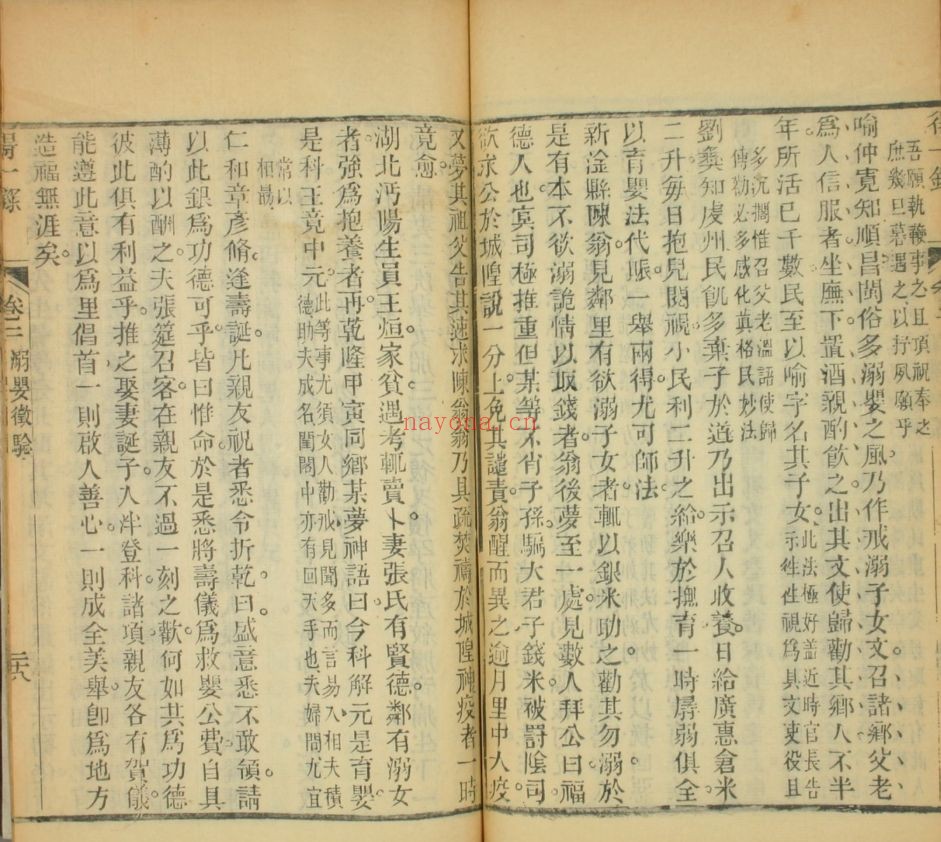 吾願執鞭事之且頂祝奉之
庶幾旦暮遇之以抒夙願乎
喻仲寬知順昌閩俗多溺嬰之風乃作戒溺子女文召諸鄉父老
為人信服者坐廡下置酒親酌飲之出其文使歸勸其鄉人不半
年所活已千數民至以喻字名其子女此法極好蓋近時官長告
示徃徃視為具文吏役且
多沉擱惟召父老溫語使歸
傳勸必多感化真格民妙法
劉彝知虔州民飢多棄子於道乃出示召人收養日給廣惠倉米
二升每日抱見閱視小民利二升之給樂於撫育一時孱弱俱全
以育嬰法代賑一舉兩得尤可師法
新淦縣陳翁見鄰里有欲溺子女者輒以銀米助之勸其勿溺於
是有本不欲溺詭情以取錢者翁後夢至一處見數人拜公曰福
德人也冥司極推重但某等不肖子孫騙大君子錢米被罰陰司
欲求公於城隍說一分上免其譴責翁醒而異之逾月里中大疫
又夢其祖父告其速求陳翁翁乃具疏焚禱於城隍神疫者一時
竟愈
湖北沔陽生員王烜家貧遇考輒賣卜妻張氏有賢德鄰有溺女
者強為抱養者再乾隆甲寅同鄉某夢神語曰今科解元是育嬰
是科王竟中元此等事尤須女人勸戒見聞多而言易入相夫積
德助夫成名閨閣中亦有回天手也夫婦間尤宜
常以
相勗
仁和章彥脩逢壽誕凡親友祝者悉令折乾曰盛意悉不敢領請
以此銀為功德可乎皆曰惟命於是悉將壽儀為救嬰公費自具
薄酌以酬之夫張筵召客在親友不過一刻之歡何如其為功德
彼此俱有利益乎推之娶妻誕子入泮登科諸項親友各有賀儀
能遵此意以為里倡首一則啟人善心一則成全美舉卽為地方
造福無涯矣
得一錄
卷三 溺嬰徵驗
二十八
nayona.cn